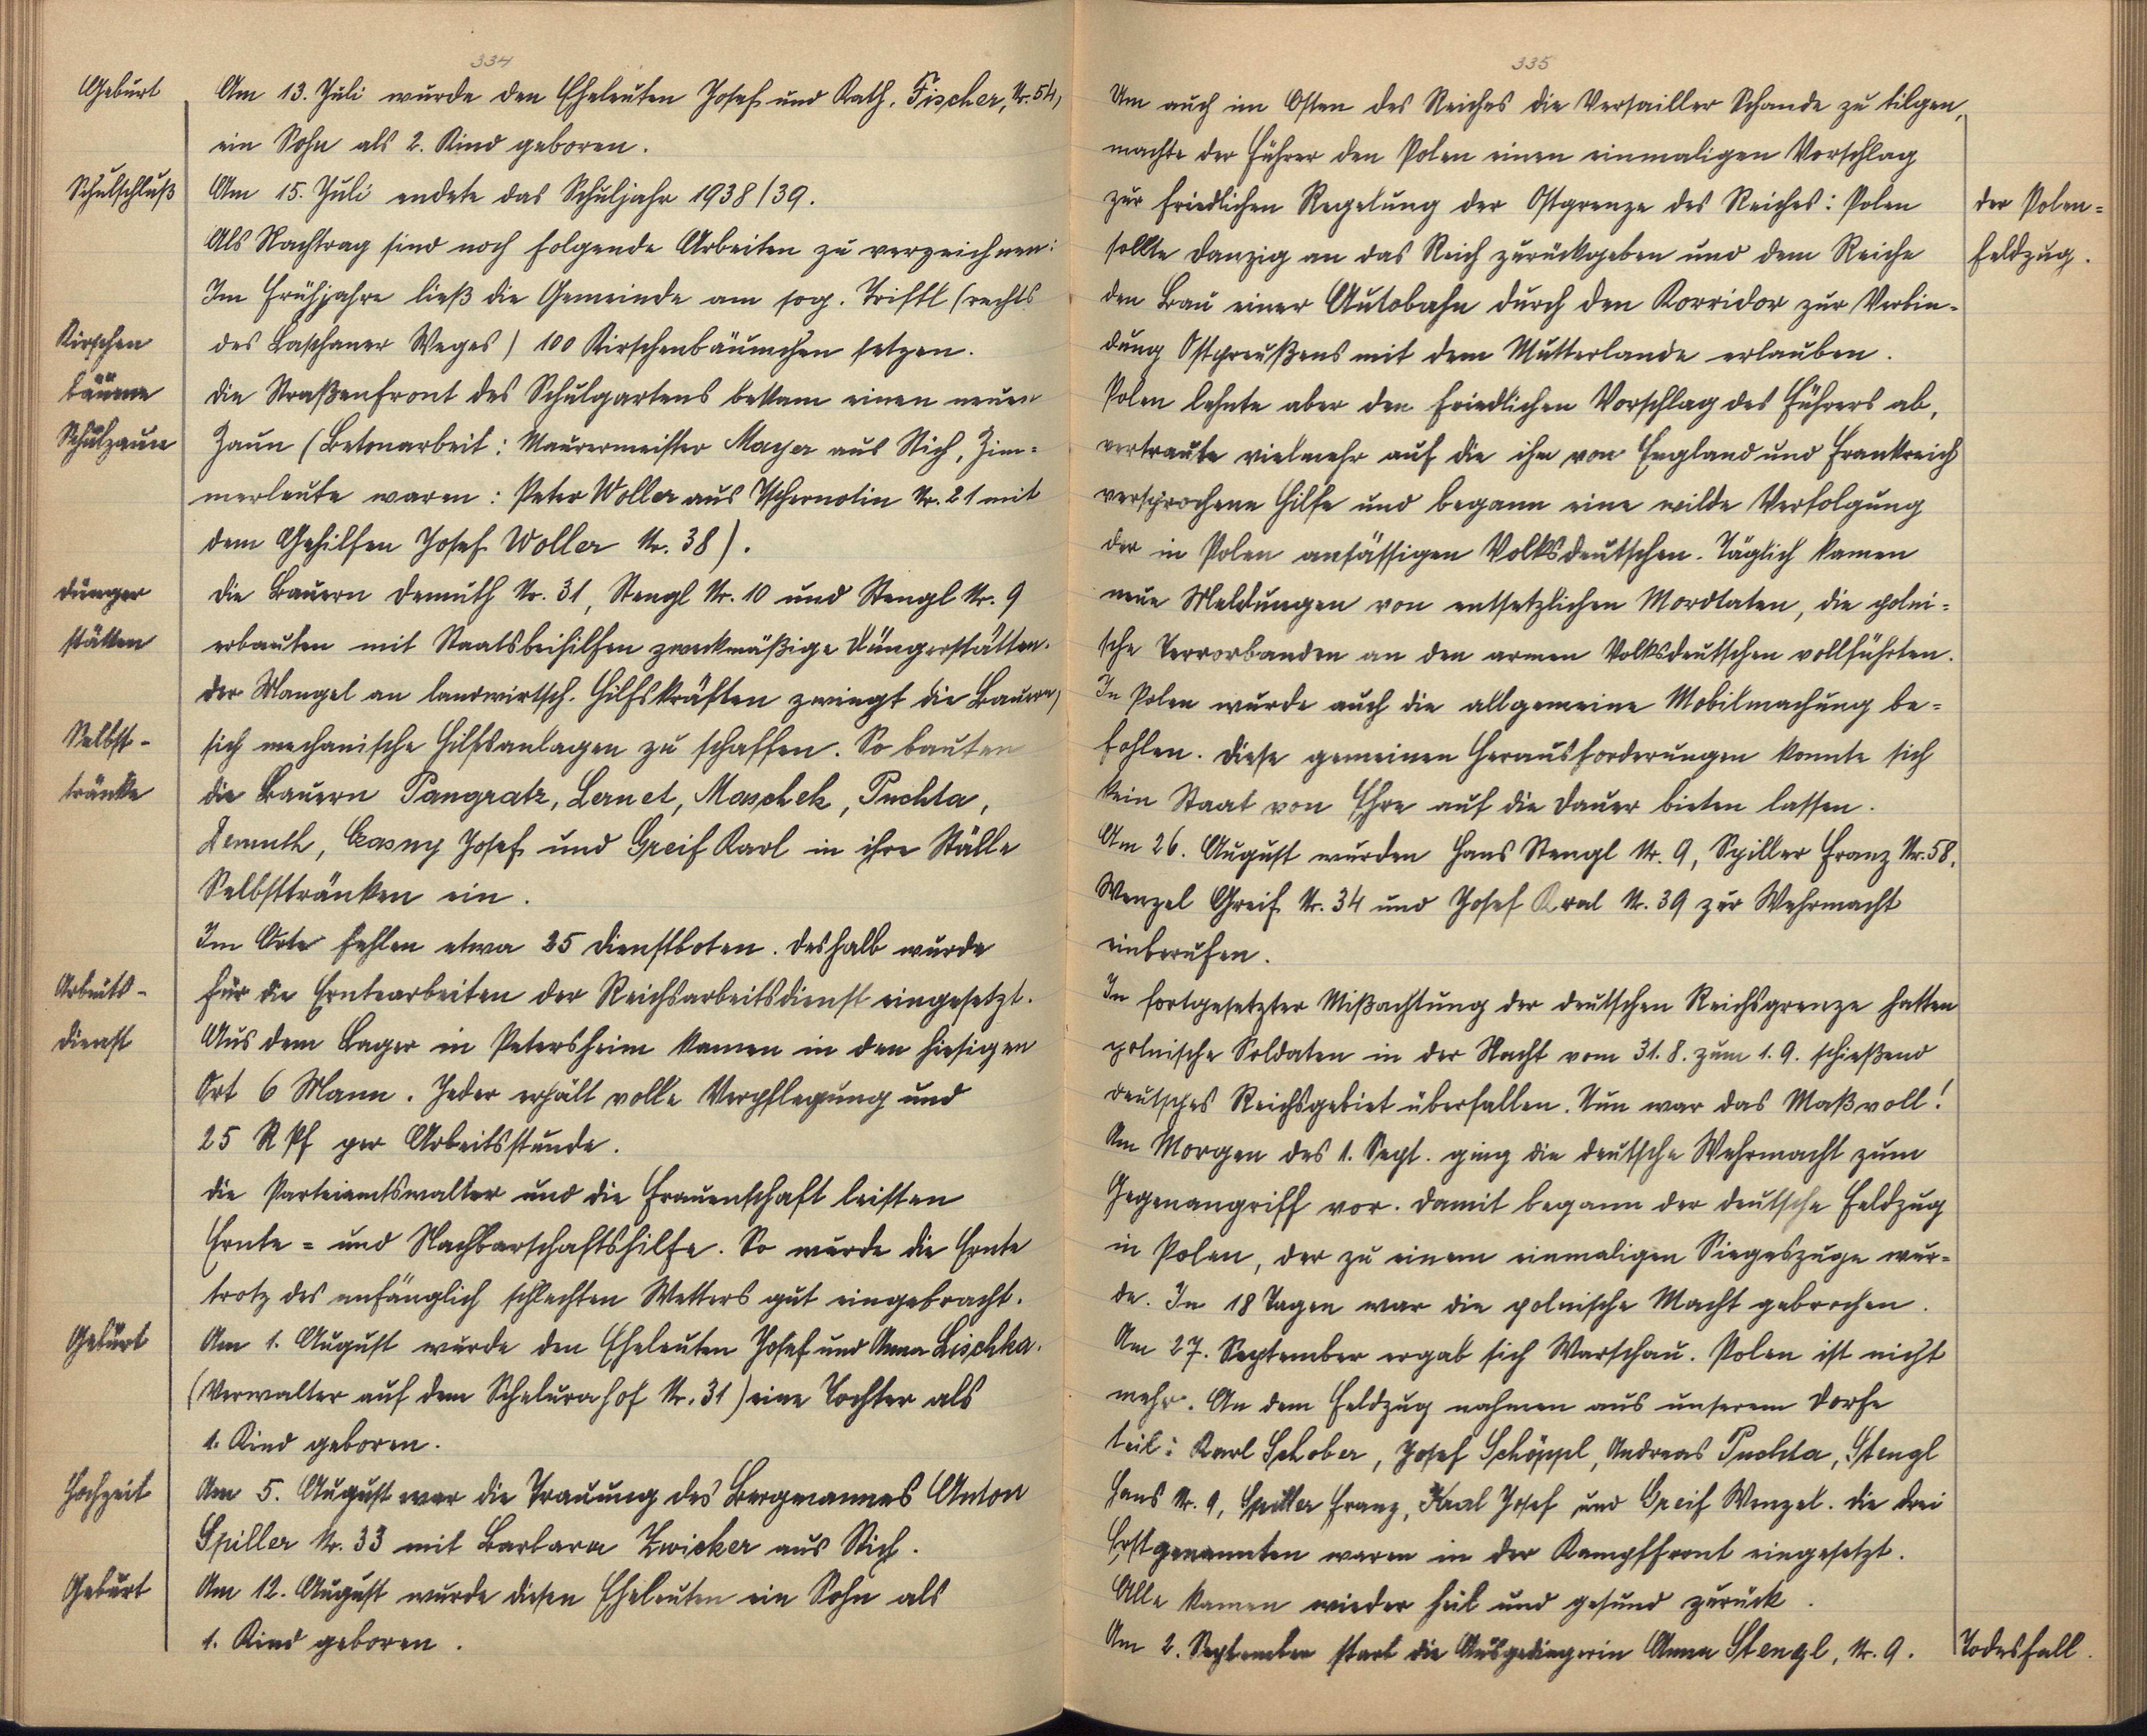 334
Geburt Am 13. Juli wurde den Eheleuten Josef und Kath. Fischer, Nr. 54,
ein Sohn als 2. Kind geboren.
Schulschluß Am 15. Juli endete das Schuljahr 1938/39.
Als Nachtrag sind noch folgende Arbeiten zu verzeichnen:
Im Frühjahre ließ die Gemeinde am sog. Triftl (rechts
Kirschen des Laschaner Weges) 100 Kirschenbäumchen setzen.
bäume Die Straßenfront des Schulgartens bekam einen neuen
Schulzaun Zaun (Betonarbeit: Maurermeister Mayer aus Stich, Zim-
merleute waren: Peter Woller aus Tschernotin Nr. 21 mit
dem Gehilfen Josef Woller Nr. 38).
Dünger Die Bauern Demuth Nr. 31, Stengl Nr. 10 und Stengl Nr. 9
stätten erbauten mit Staatsbeihilfen zweckmäßige Düngerstätten.
Der Mangel an landwirtsch. Hilfskräften zwingt die Bauern,
Selbst- sich mechanische Hilfsanlagen zu schaffen. So bauten
tränke die Bauern Pangratz, Lernet, Maschek, Puchta,
Demuth, Casny Josef und Greif Karl in ihre Ställe
Selbsttränken ein.
Im Orte fehlen etwa 25 Dienstboten. Deshalb wurde
Arbeits- für die Erntearbeiten der Reichsarbeitsdienst eingesetzt.
dienst Aus dem Lager in Petersheim kamen in den hiesigen
Ort 6 Mann. Jeder erhält volle Verpflegung und
25 R Pf per Arbeitsstunde.
Die Parteiamtswalter und die Frauenschaft leisten
Ernte- und Nachbarschaftshilfe. So wurde die Ernte
trotz des anfänglich schlechten Wetters gut eingebracht.
Geburt Am 1. August wurde den Eheleuten Josef und Anna Lischka.
(Verwalter auf dem Schelurahof Nr. 31) eine Tochter als
1. Kind geboren.
Hochzeit Am 5. August war die Trauung des Bergmannes Anton
Spiller Nr. 33 mit Barbara Zwicker aus Stich.
Geburt Am 12. August wurde diesen Eheleuten ein Sohn als
1. Kind geboren.
335
Um auch im Osten des Reiches die Versailler Schande zu tilgen,
machte der Führer den Polen einen einmaligen Vorschlag
zur friedlichen Regelung der Ostgrenze des Reiches: Polen Der Polen-
sollte Danzig an das Reich zurückgeben und dem Reiche feldzug.
den Bau einer Autobahn durch den Korridor zur Verbin-
dung Ostpreußens mit dem Mutterlande erlauben.
Polen lehnte aber den friedlichen Vorschlag des Führers ab,
vertraute vielmehr auf die ihm von England und Frankreich
versprochene Hilfe und begann eine wilde Verfolgung
der in Polen ansässigen Volksdeutschen. Täglich kamen
neue Meldungen von entsetzlichen Mordtaten, die polni-
sche Terrorbanden an den armen Volksdeutschen vollführten.
In Polen wurde auch die allgemeine Mobilmachung be-
fohlen. Diese gemeinen Herausforderungen konnte sich
kein Staat von Ehre auf die Dauer bieten lassen.
Am 26. August wurden Hans Stengl Nr. 9, Spiller Franz Nr. 58,
Wenzel Greif Nr. 34 und Josef Kral Nr. 39 zur Wehrmacht
einberufen.
In fortgesetzter Mißachtung der deutschen Reichsgrenze hatten
polnische Soldaten in der Nacht vom 31. 8. zum 1. 9. schießend
deutsches Reichsgebiet überfallen. Nun war das Maß voll!
Am Morgen des 1. Sept. ging die deutsche Wehrmacht zum
Gegenangriff vor. Damit begann der deutsche Feldzug
in Polen, der zu einem einmaligen Siegeszuge wur-
de. In 18 Tagen war die polnische Macht gebrochen.
Am 27. September ergab sich Warschau. Polen ist nicht
mehr. An dem Feldzug nahmen aus unserem Dorfe
teil: Karl Schober, Josef Schöppl, Andreas Puchta, Stengl
Hans Nr. 9, Spiller Franz, Kral Josef und Greif Wenzel. Die drei
Erstgenannten waren in der Kampffront eingesetzt.
Alle kamen wieder heil und gesund zurück.
Am 2. September starb die Ausgedingerin Anna Stengl, Nr. 9. Todesfall.